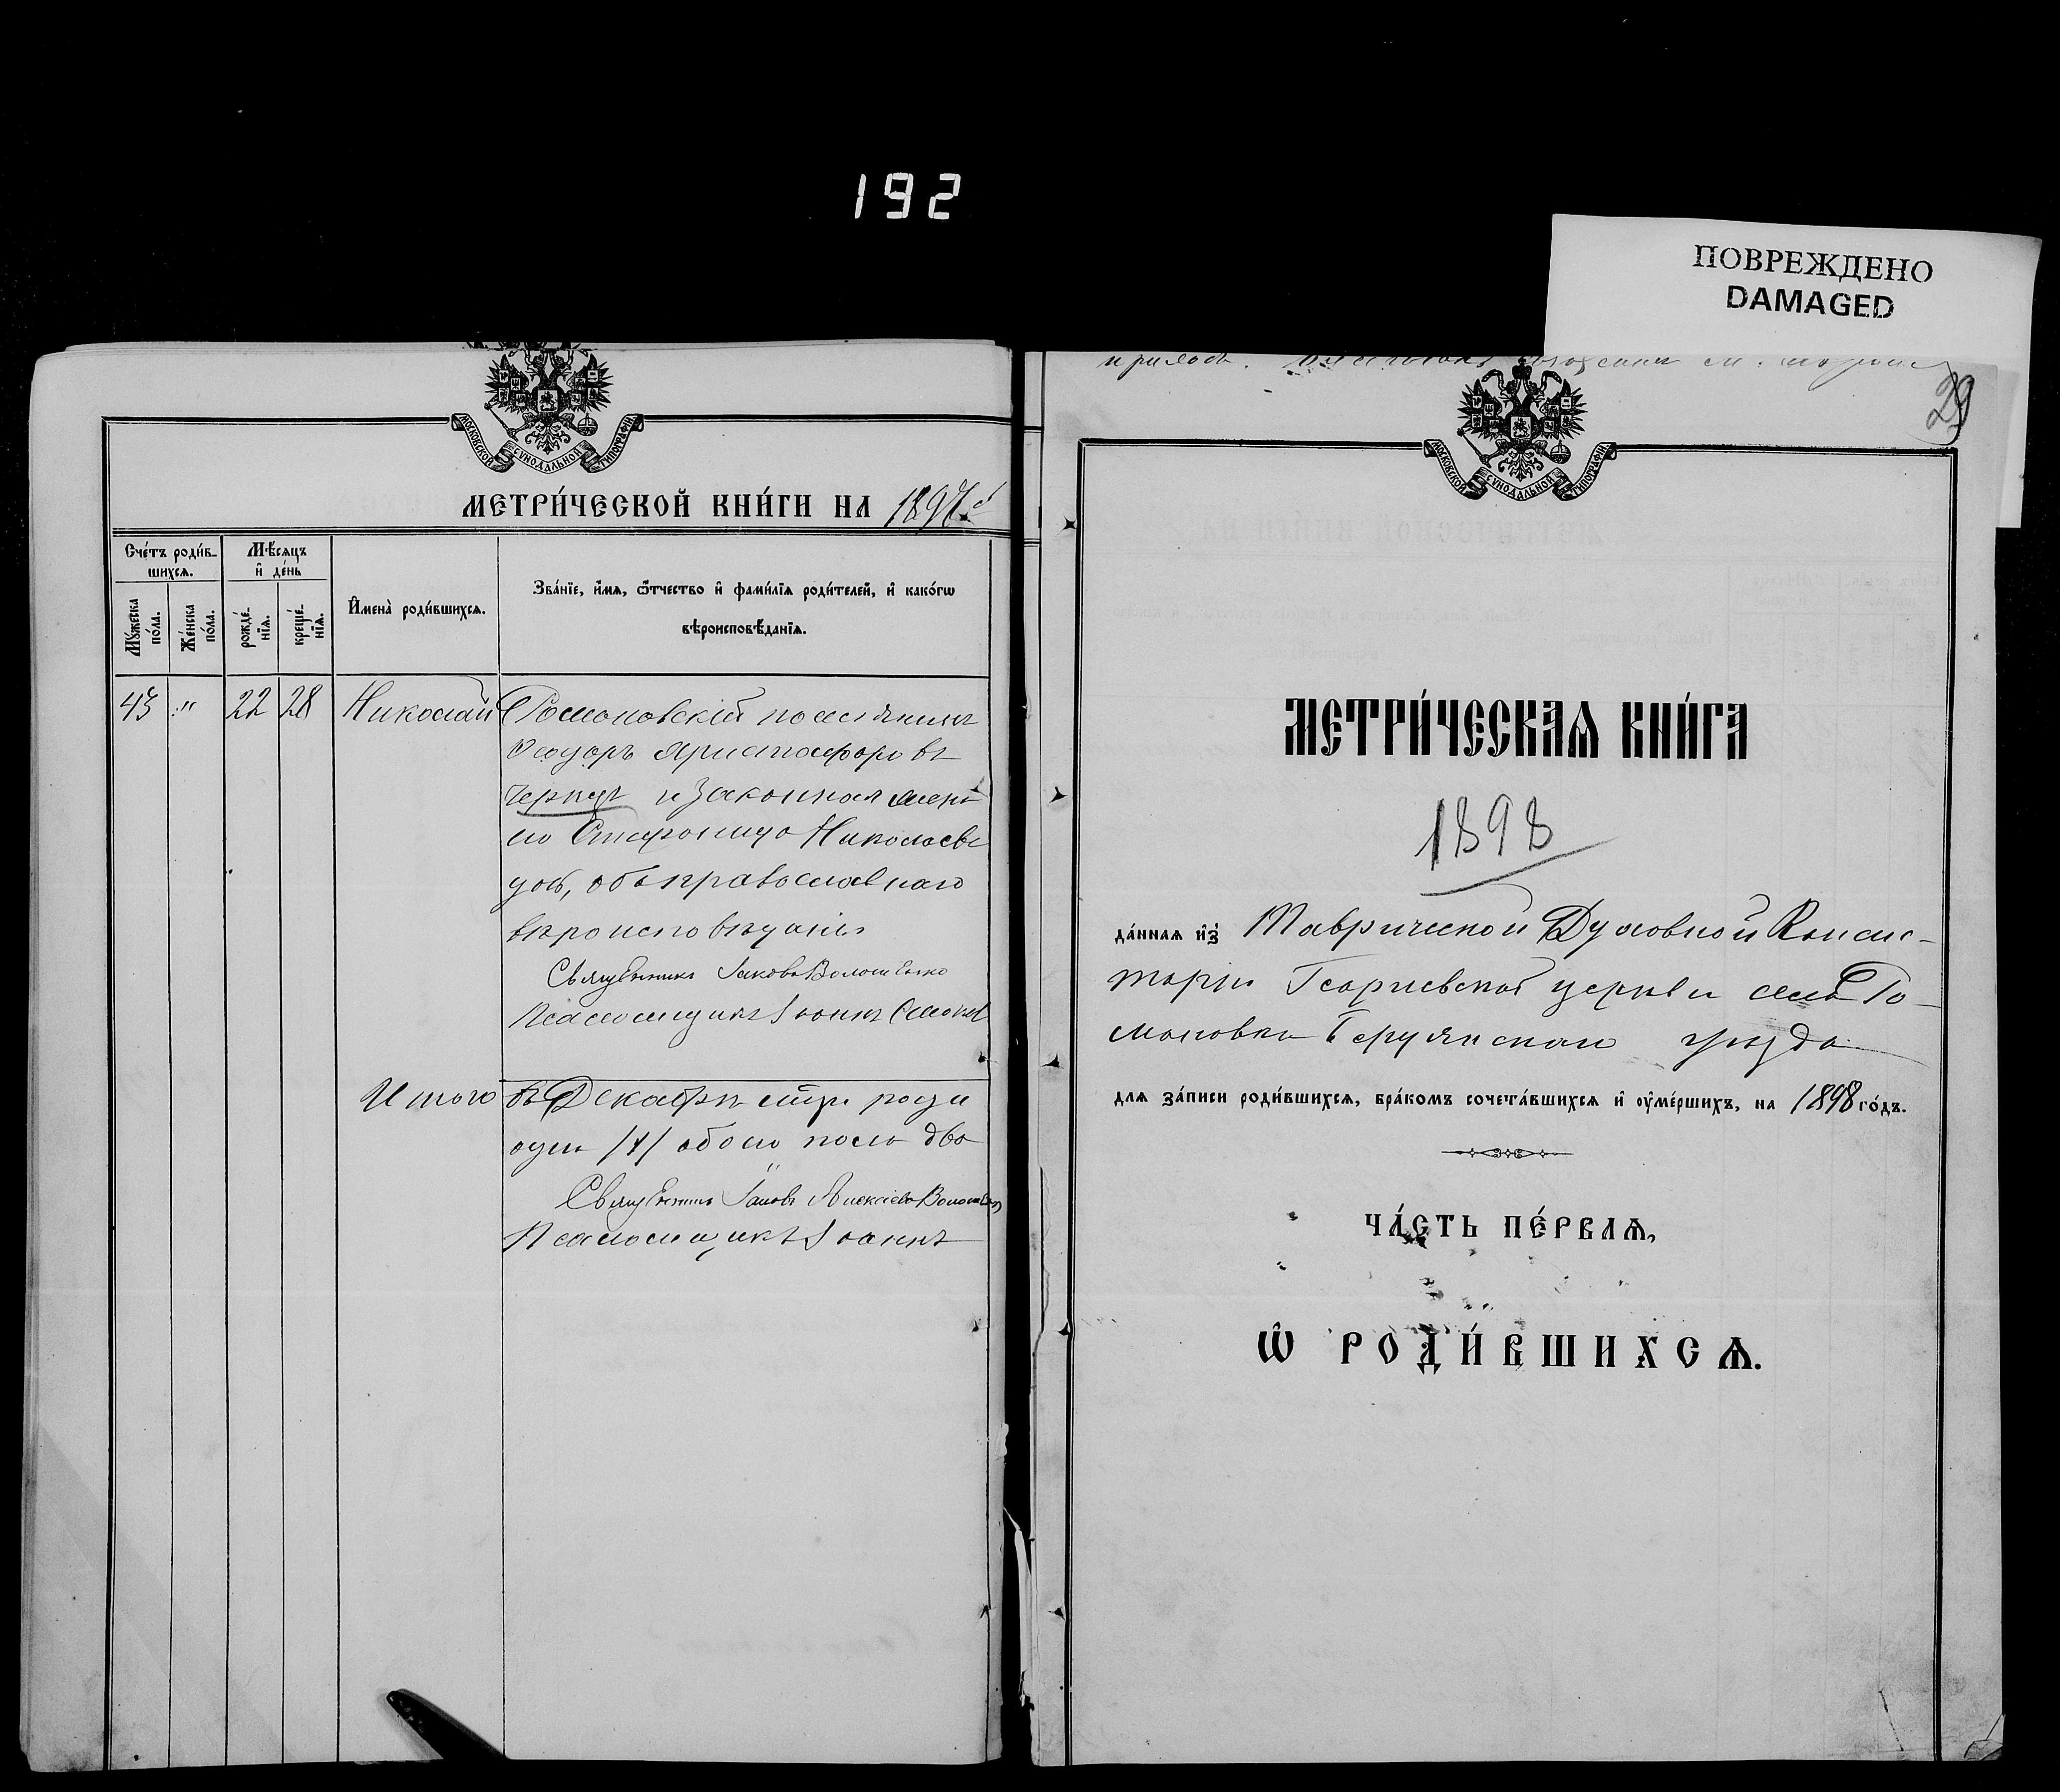 192
ПОВРЕЖДЕНО
DAMAGED
МОСКОВСКОЙ СУНОДАЛЬНОЙ ТИПОГРАФІИ
МЕТРИ́ЧЕСКОЙ КНИ́ГИ НА 1897
Сче́тъ роди́в-
шихсѧ.
Мѣ́сѧцъ
и҆ де́нь
И҆мена̀ роди́вшихсѧ.
Зва́нїе, и҆́мѧ, ѻ҆́тчество и҆ фами́лїѧ роди́телей, и҆ како́гѡ
вѣроисповѣ́данїѧ.
Мꙋ́жеска
по́ла.
Же́нска
по́ла.
рожде́-
нїѧ.
креще́-
нїѧ.
43 " 22 28 Николай Романовскій поселянинъ
Ѳеодоръ Христофоровъ
и законная жена
его Стефанида Николаева
оба православнаго
вѣроисповѣданія
Священникъ Іаковъ Волошенко
Псаломщикъ Іоаннъ
Итого въ Декабрѣ роди
одинъ /1/ обоего пола два
Священникъ Іаковъ Алексіевъ
Псаломщикъ Іоаннъ
29
МОСКОВСКОЙ СУНОДАЛЬНОЙ ТИПОГРАФІИ
МЕТРИ́ЧЕСКАѦ КНИ́ГА
1898
да́ннаѧ и҆з̾ Таврической Духовной Консис-
торіи Георгіевской церкви села Ро-
мановки Бердянскаго уѣзда
длѧ за́писи роди́вшихсѧ, бра́комъ сочета́вшихсѧ и҆ ᲂу҆ме́ршихъ, на 1898 го́дъ.
ЧА́СТЬ ПЕ́РВАѦ,
Ѡ҆ РОДИ́ВШИХСѦ.